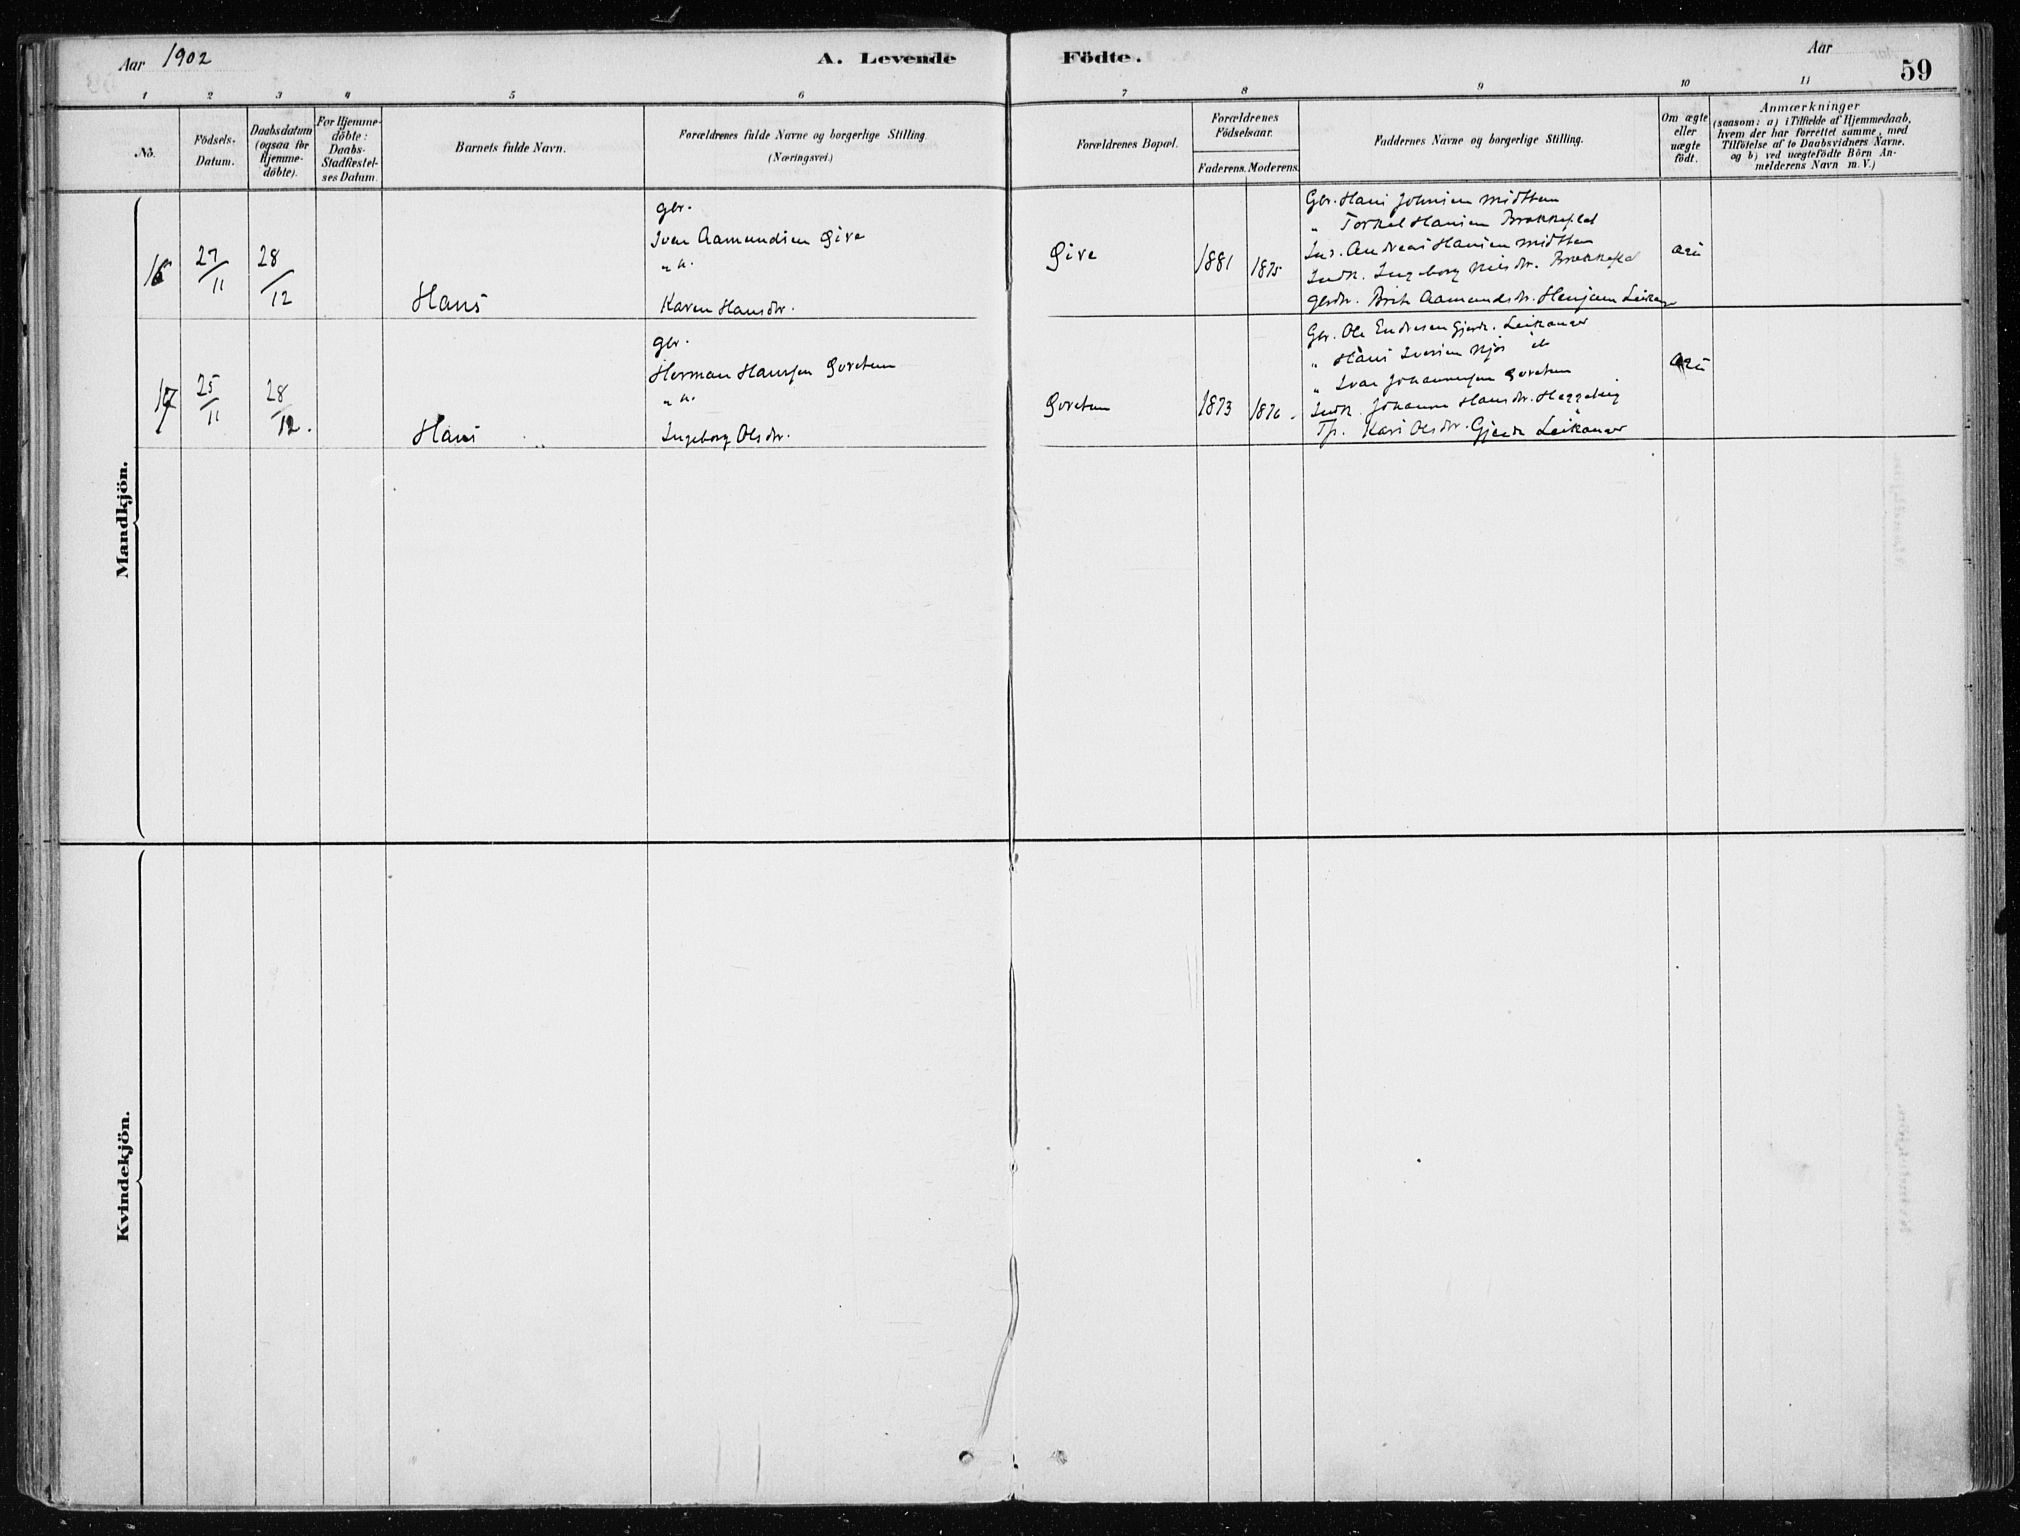 Aar 1902
A. Levende Födte.
Aar
59
1 2 3 4 5 6 7 8 9 10 11
No.
Födsels-
Datum.
Daabsdatum
(ogsaa for
Hjemme-
döbte).
For Hjemme-
döbte:
Daabs-
Stadfæstel-
ses Datum.
Barnets fulde Navn.
Forældrenes fulde Navne og borgerlige Stilling.
(Næringsvei.)
Forældrenes Bopæl.
Forældrenes
Födselsaar.
Faderens. Moderens.
Faddernes Navne og borgerlige Stilling.
Om ægte
eller
uægte
födt.
Anmærkninger
(saasom: a) i Tilfælde af Hjemmedaab,
hvem der har forrettet samme, med
Tilföielse af to Daabsvidners Navne.
og b) ved uægtefödte Börn An-
melderens Navn m. V.)
Mandkjön.
16
27/11
28/12
Hans
gbr.
Iver Aamundsen
" k.
Karen Hansdtr.
1881
1875
Gbr. Hans Johnsen Midttun
" Torkel Hansen
Andreas Hansen Midttun
Indk. Ingeborg Nilsdtr.
Gbrdtr. Brit Aamundsdtr. Henjum
17
25/11
28/12.
Hans
gbr.
Herman Hanssen
" k.
Ingeborg Olsdtr.
1873
1876
Gbr. Ole Endresen Gjerde. Leikanger
" Hans Iversen Njøs
" Ivar Johannessen
Indk. Johanna Hansdtr.
Tp. Kari Olsdtr. Gjerde Leikanger
Kvindekjön.